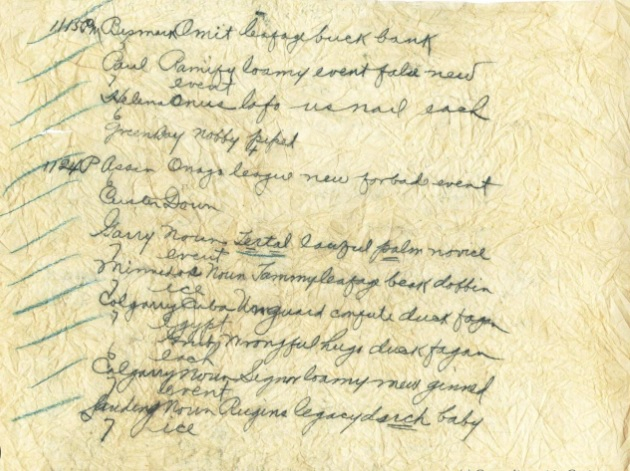 1150 Pm Bismark Omit leafage buck bank
Paul Ramify loamy event false new
7 event
Helena Onus lofo usnail each
6
Greenbay nobby piped
1124 P Assin Onago league new forbade event
Custer Down
Garry Noun Tertal lawful palm novice
7 event
Minnedos Noun Jammy leafage beak dobbin
7 ice
Calgarry Cuba Unguard confute duck fagan
7 egypt
Wrongful hugo duck fagan
each
Calgarry Noun Signor loamy mew ginned
7 event
Landing Noun Rugins legacy duck baby
7 ice